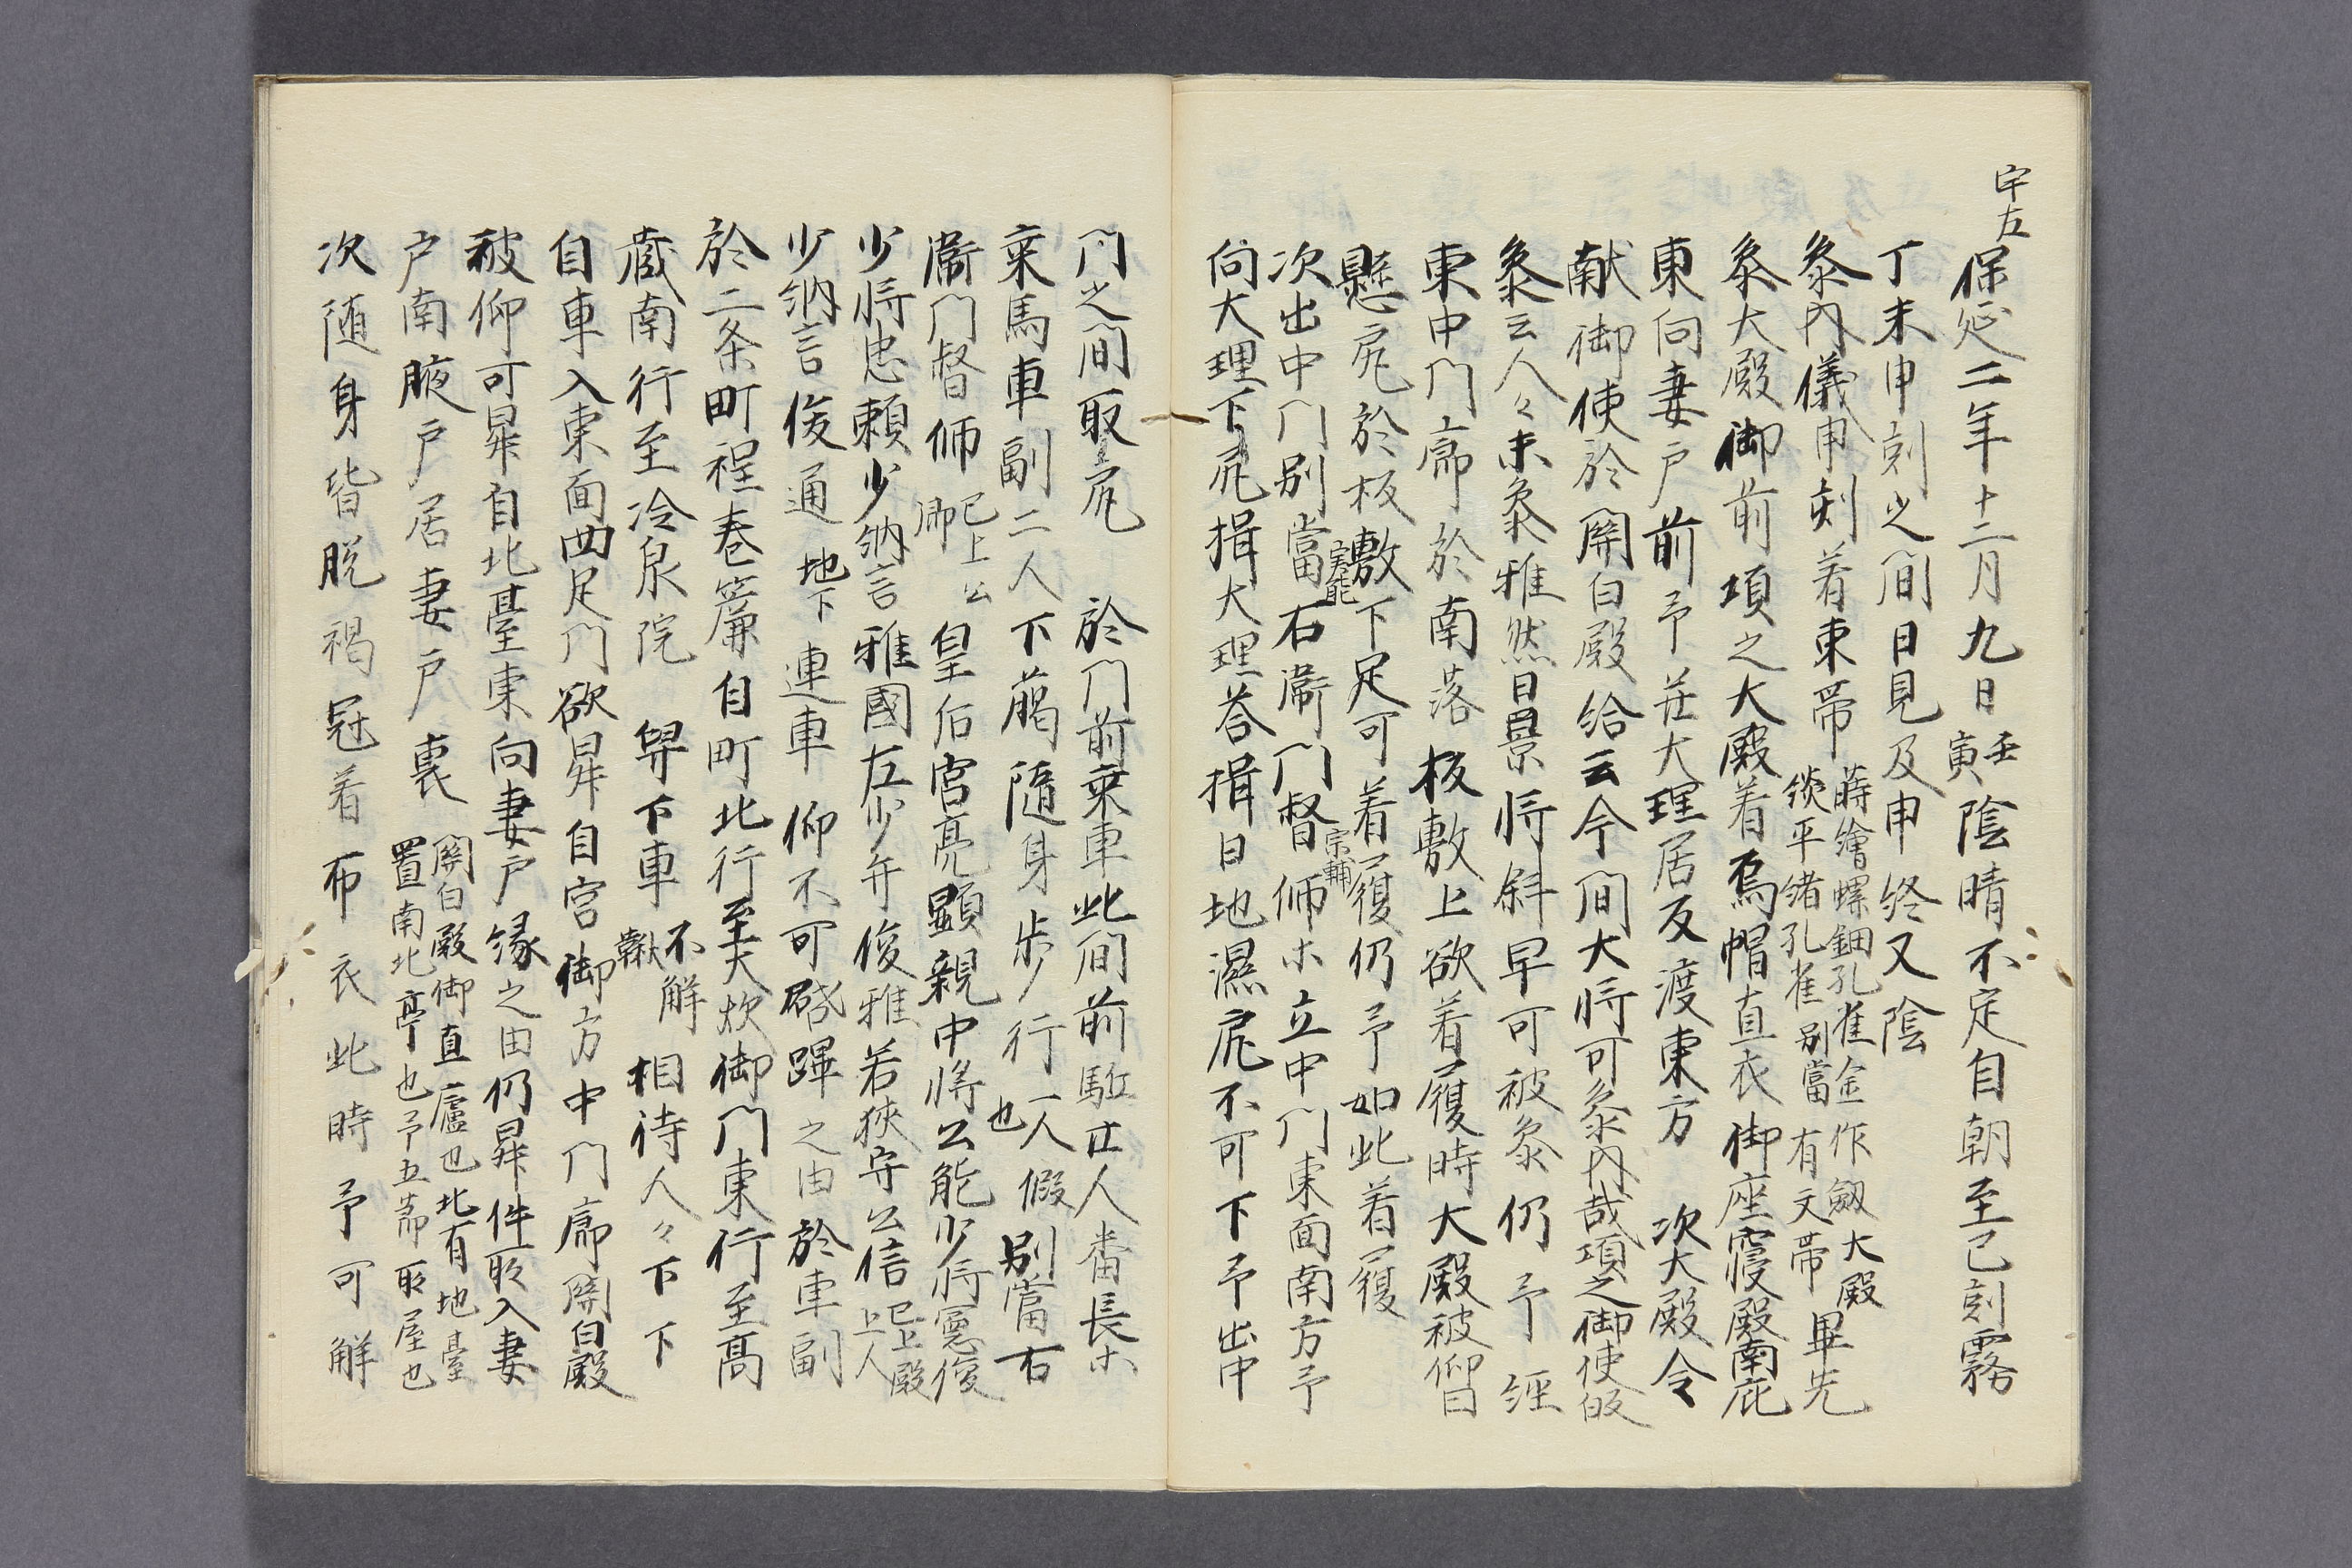 宇左
保延二年十二月九日壬寅陰晴不定自朝至巳刻霧
丁未申刻之間日見及申終又陰
参内儀申刻着束帯蒔繪螺鈿孔雀金作劔大殿
錟平緒孔雀別當有文帯畢先
参大殿御前項之大殿着烏帽直衣御座寝殿南庇
東向妻戸前予并大理居反渡東方 次大殿令
献御使於関白殿给云今間大将可参内哉項之御使皈
参云人々未参雅然日景将斜早可被参仍予経
東中門廊於南落板敷上欲着履時大殿被仰曰
懸尻於板敷下足可着履仍予如此着履
次出中門別當実能右衛門督宗輔师ホ立中門東面南方予
向大理下尻揖大理答揖日地濕尻不可下予出中
門之間取尻 於門前乗車此間前駈廿人番長ホ
乗馬車副二人下﨟随身歩行一人假也別當右
衛門督师已上公卿皇后宮亮顕親中将公能少将憲俊
少将忠頼少納言雅國左少弁俊雅若狭守公信已上殿上人
少納言俊通地下連車 仰不可啓蹕之由於車副
於二条町程巻簾自町北行至大炊御門東行至高
蔵南行至冷泉院 昇下車不解鞦相待人々下下
自車入東面四足門欲昇自宮御方中門廊関白殿
被仰可昇自北臺東向妻戸縁之由仍昇件所入妻
戸南腋戸居妻戸裏関白殿御直廬也北有地臺
置南北亭也予五節所屋也
次随身皆脱褐冠着布衣此時予可解